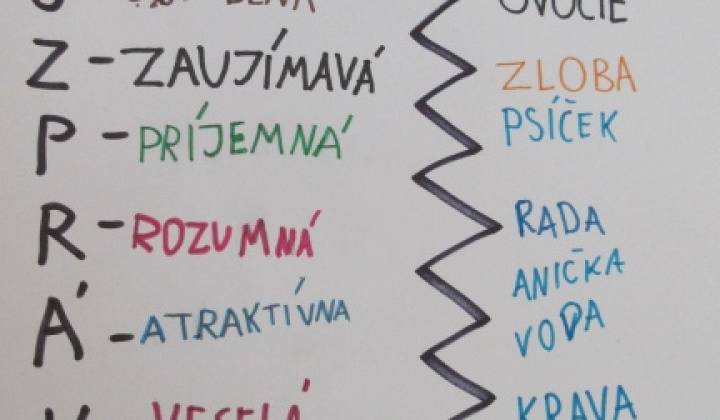 OVOCIE
Z - ZAUJÍMAVÁ ZLOBA
P - PRÍJEMNÁ PSÍČEK
R - ROZUMNÁ RADA
ANIČKA
Á - ATRAKTÍVNA VODA
VESELÁ KRAVA